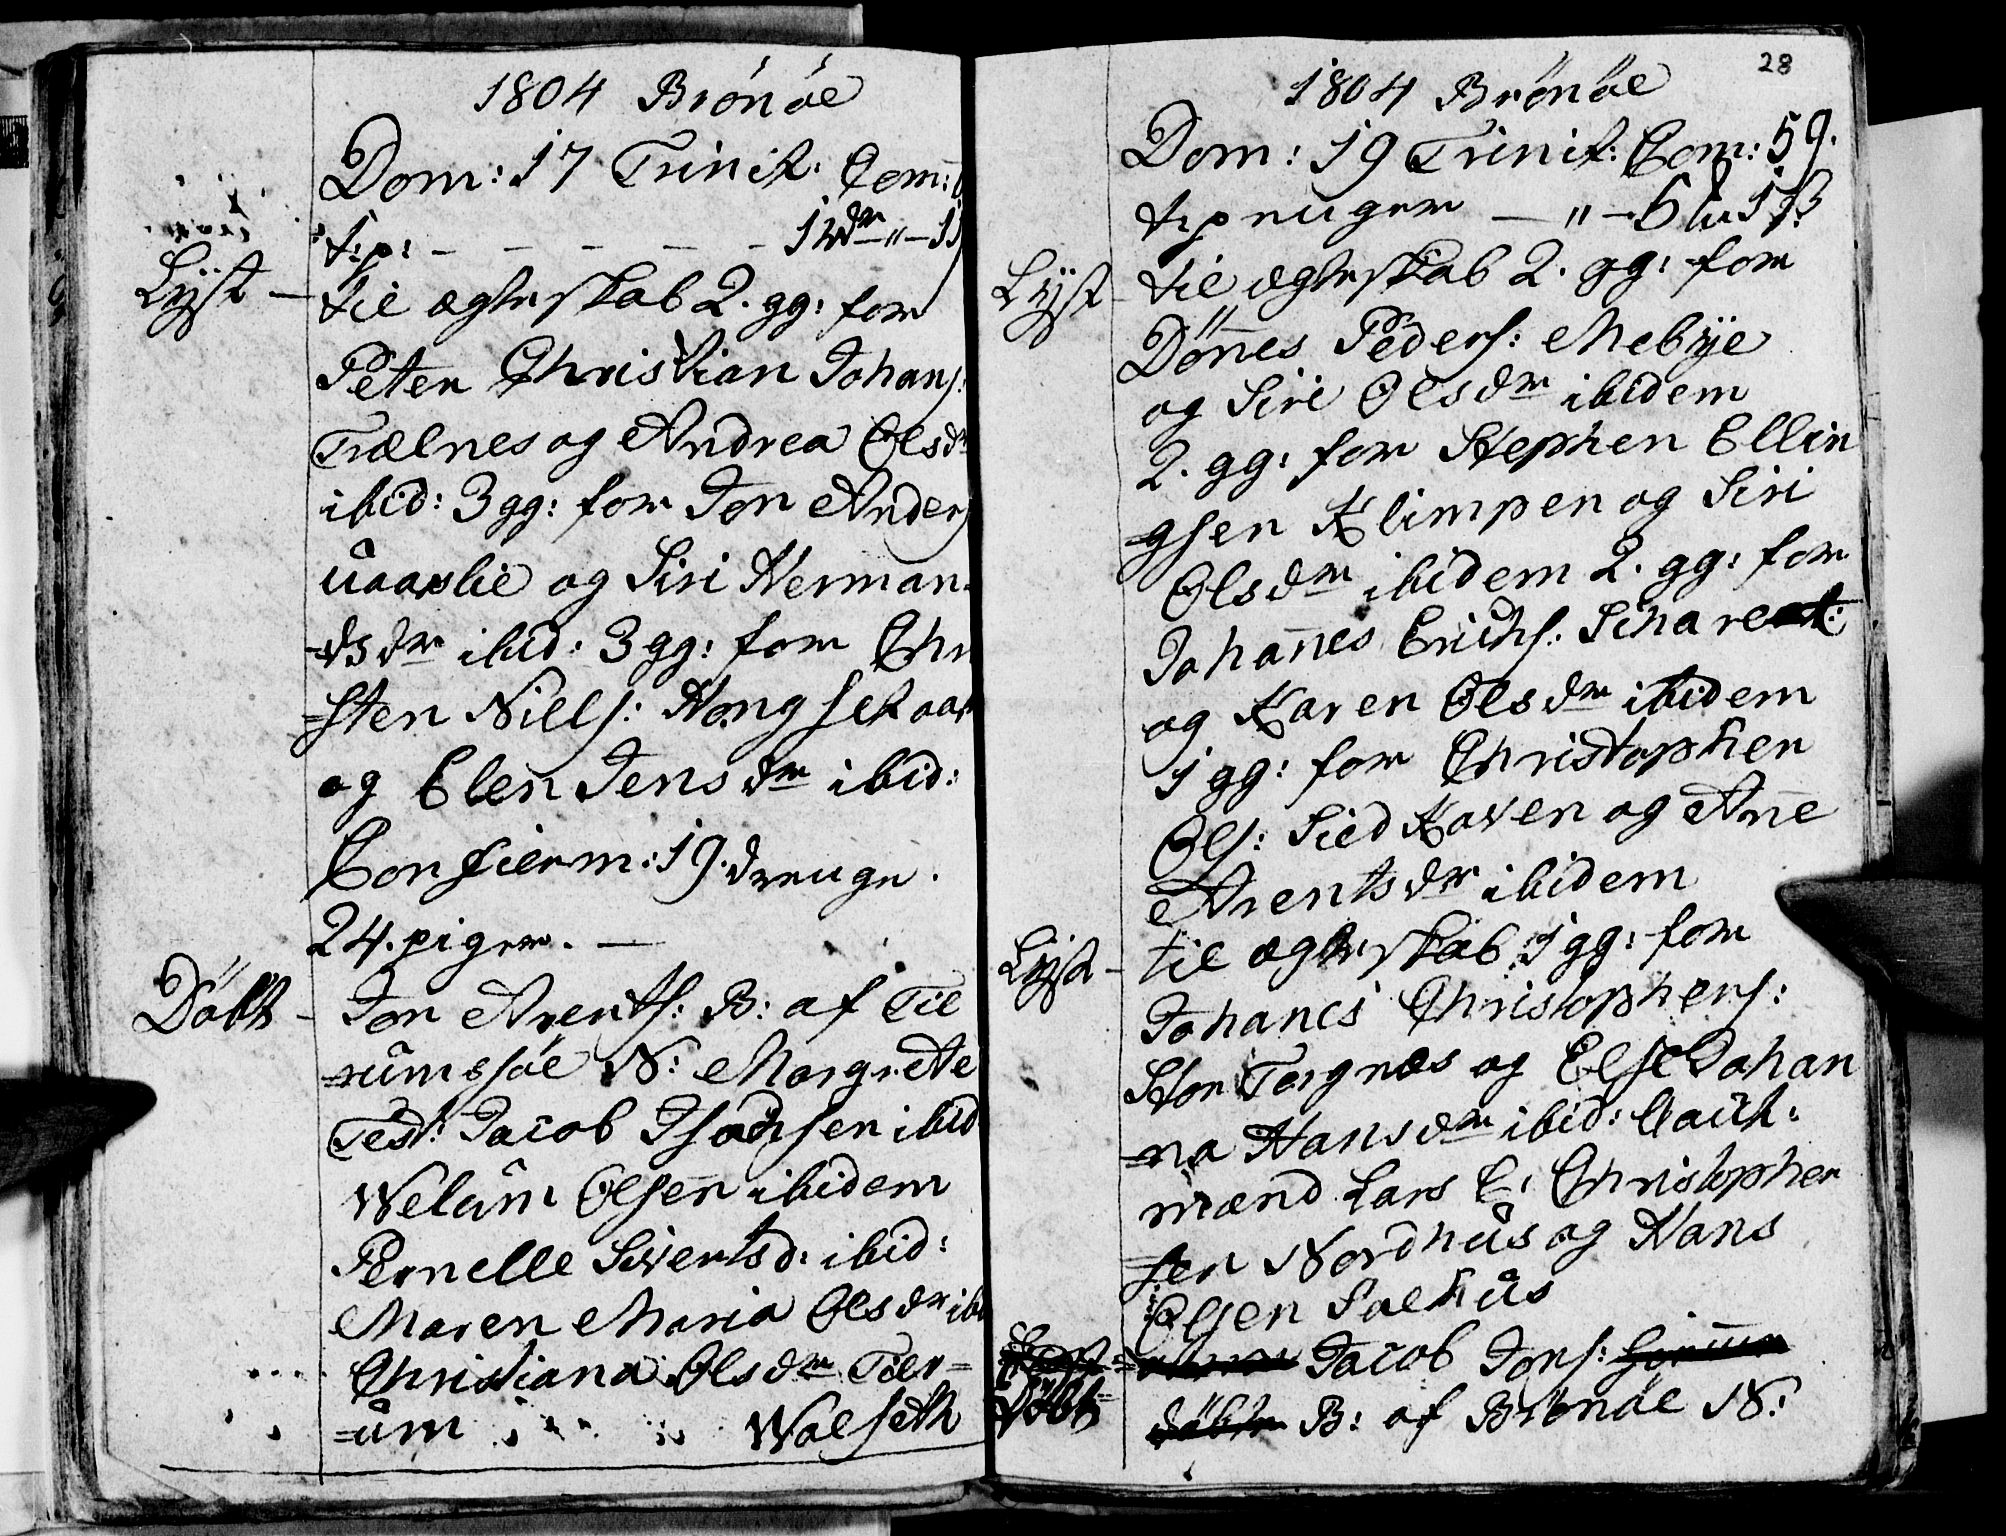 1804 Brönöe
Dom: 17 Trinit: Com:
t:p: - - - - - 1 - " - 1
Lyst - til ægteskab 2. gg: for
Peter Christian Johans:
Trælnes og Andrea Olsdr
ibid: 3 gg: for Jon Anders
Uaaslie og Siri Herman-
=dsdr ibid: 3 gg: for Chri
=sten Niels: Hongsetaas
og Elen Jensdr ibid:
Confierm: 19. drenge.
24. piger. -
Döbt - Jon Arents: B: af Til
=rumsöe N: Margrete
Test: Jacob Isachsen ibid
Welum Olsen ibidem
Pernelle Sivertsd: ibid:
Maren Maria Olsdr ibi
Christiana Olsdr Tilr=
=um Walseth
28
1804 Brönöe
Dom: 19 Trinit: Com: 59.
t:p
Lyst - til ægteskab 2. gg: for
Dönnes Peders: Mebye
og Siri Olsdr ibidem
2. gg: for Stephen Ellin
=gsen Klimpen og Siri
Olsdr ibidem 2. gg: for
Johannes Erichs:
og Karen Olsdr ibidem
1 gg: for Christopher
Ols: Sildhaven og Anne
Arentsdr ibidem
Lyst - til ægteskab 1 gg: for
Johanes Christophers:
Stor Torgnæs og Else Johan
=na Hansdr ibid: Cauti:
mænd Lars C: Christopher
=sen Nordhus og Hans
Olsen Salhus
Döbt Jacob Jons:
B: af Brönöe N: